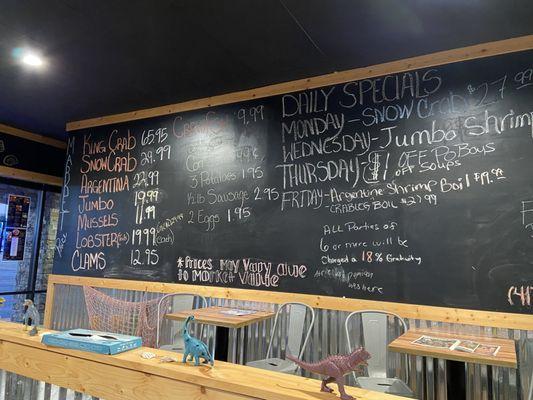 KING CRAB 65.95
SNOWCRAB 29.99
ARGENTINA 22.99
JUMBO 19.99
MUSSELS 11.99
LOBSTER 19.99
CLAMS 12.95
9.99
Corn
3 Potatoes 1.95
1/2 lb Sausage 2.95
2 Eggs 1.95
*PRICES MAY VARY DUE
TO MARKET VALUE
DAILY SPECIALS
MONDAY - SNOW CRAB $27.99
WEDNESDAY - Jumbo Shrimp
THURSDAY - $1 OFF PO BOYS
off Soups
FRIDAY - Argentine Shrimp Boil
All Parties of
6 or more will be
Charged a 18% Gratuity
was here